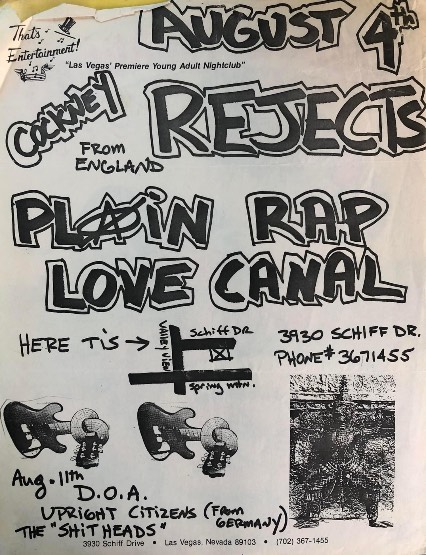 AUGUST 4th
That's
Entertainment!
"Las Vegas' Premiere Young Adult Nightclub"
COCKNEY REJECTS
FROM
ENGLAND
PLAIN RAP
LOVE CANAL
HERE TIS →
VALLEY VIEW
Schiff DR
Spring mtn.
3930 SCHIFF DR.
PHONE# 3671455
Aug. 11th
D.O.A.
UPRIGHT CITIZENS (FROM GERMANY)
THE "SHITHEADS"
3930 Schiff Drive • Las Vegas, Nevada 89103 • (702) 367-1455